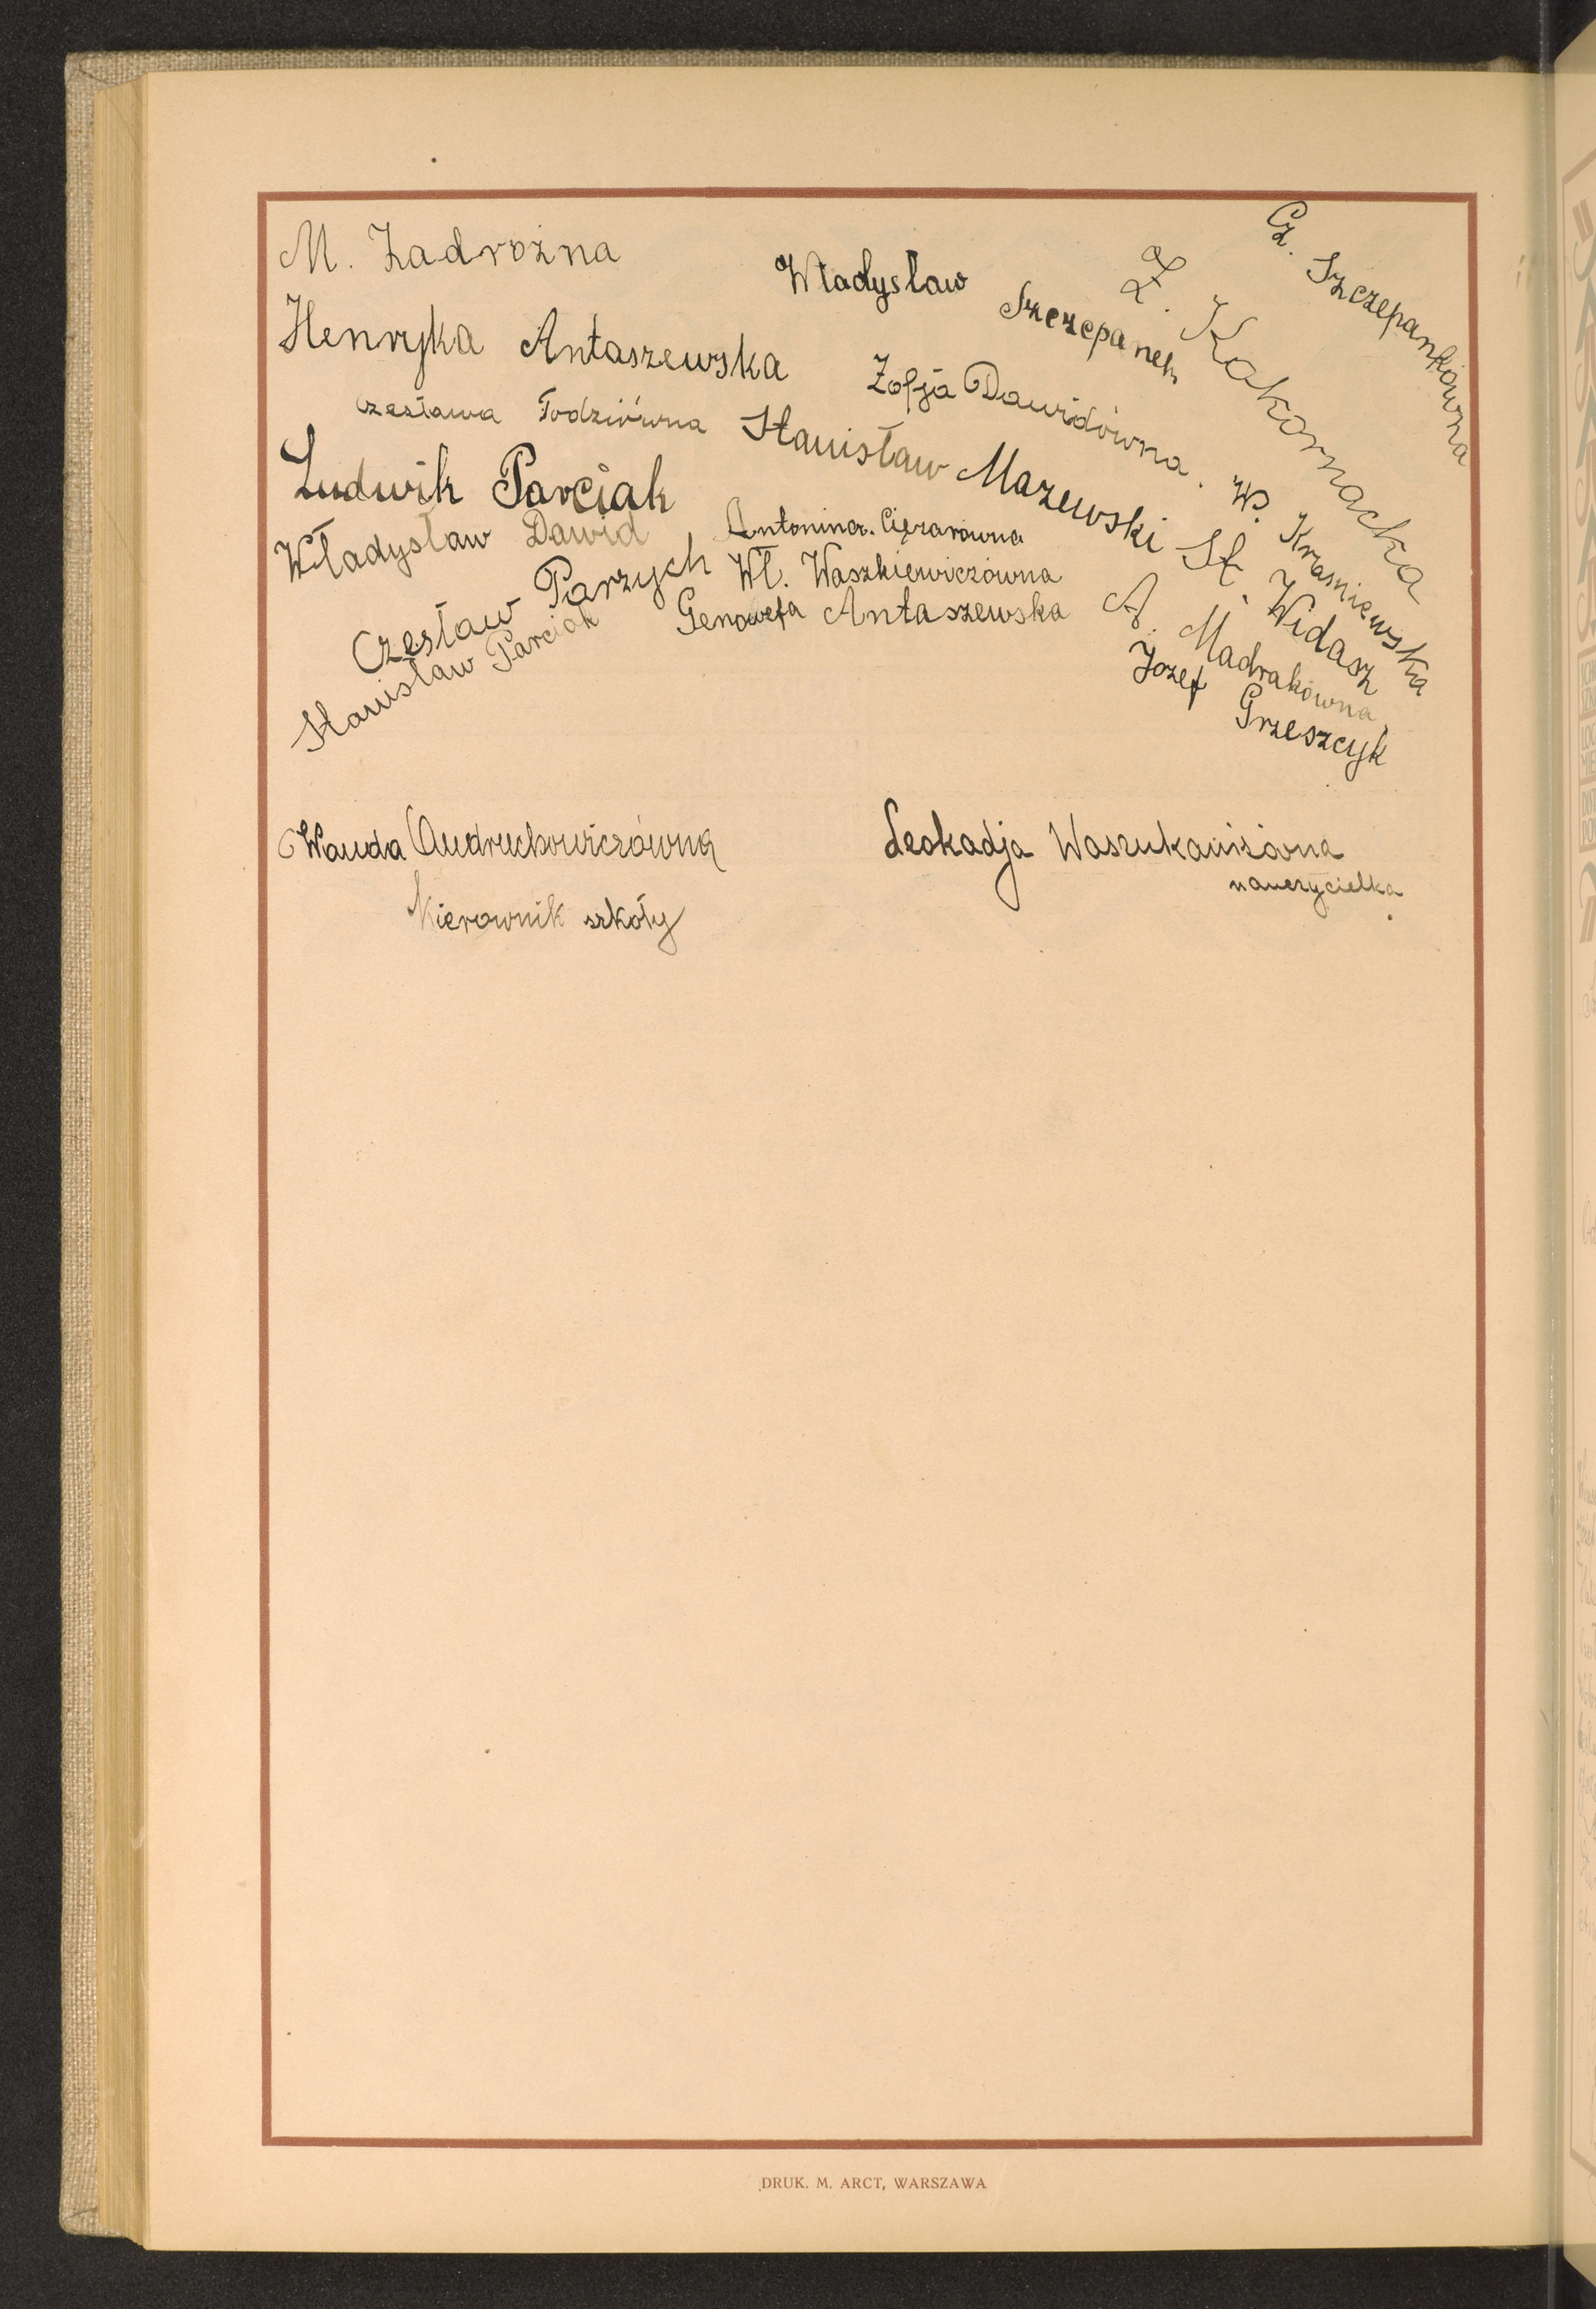 M. Zadrożna
Władysław Szczepanek
Z. Kakornacka
Cz. Szczepankówna
Henryka Antaszewska
Zofja Dawidówna.
W. Kraśniewska
Czesława Todziówna
Stanisław Mazewski
St. Widasz
Ludwik Parciak
Antonina. Ciężarówna
Władysław Dawid
Wł. Waszkiewiczówna
A. Madrakówna
Czesław Parzych
Genowefa Antaszewska
Józef Grzeszcyk
Stanisław Parciak
Wanda Andruchowiczówna
Kierownik szkoły
Leokadja
nauczycielka
DRUK. M. ARCT, WARSZAWA